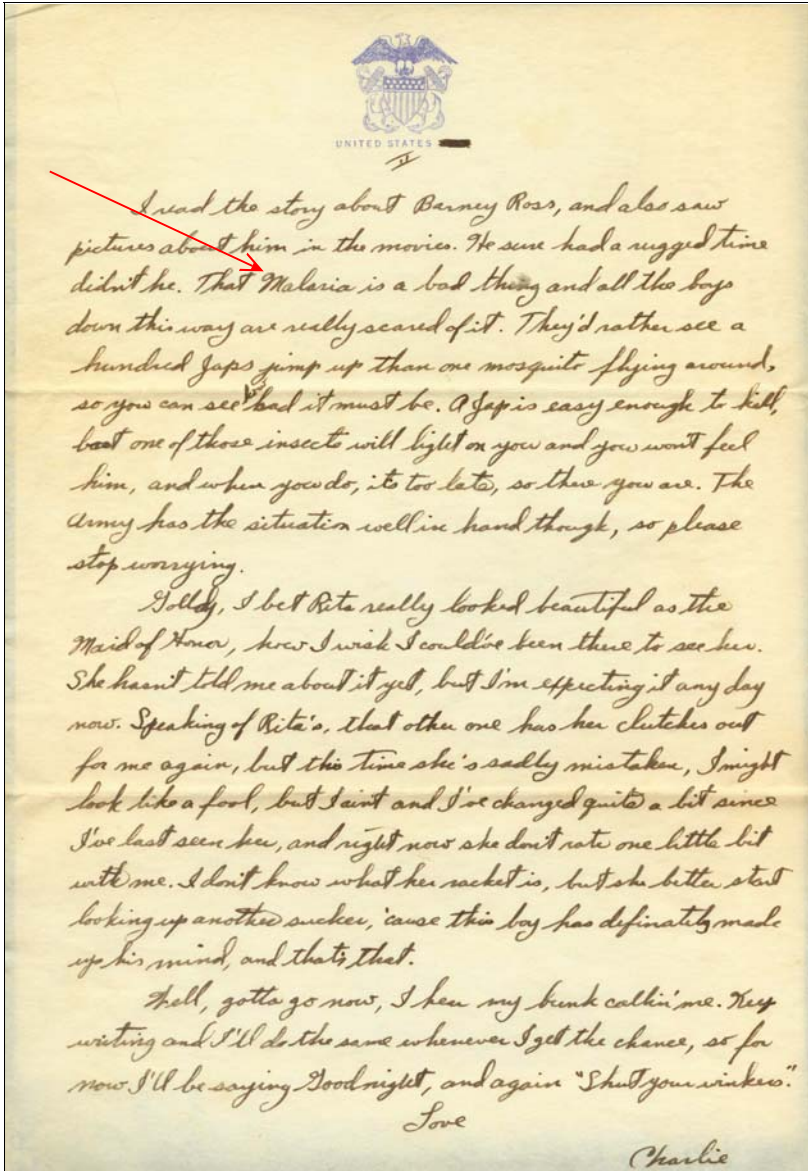 UNITED STATES
II
I read the story about Barney Ross, and also saw
pictures about him in the movies. He sure had a rugged time
didn't he. That Malaria is a bad thing and all the boys
down this way are really scared of it. They'd rather see a
hundred Japs jump up than one mosquito flying around,
so you can see how bad it must be. A Jap is easy enough to kill,
but one of those insects will light on you and you won't feel
him, and when you do, its too late, so there you are. The
Army has the situation well in hand though, so please
stop worrying.
Golly, I bet Rita really looked beautiful as the
Maid of Honor, how I wish I could've been there to see her.
She hasn't told me about it yet, but I'm expecting it any day
now. Speaking of Rita's, that other one has her clutches out
for me again, but this time she's sadly mistaken, I might
look like a fool, but I aint and I've changed quite a bit since
I've last seen her, and right now she don't rate one little bit
with me. I don't know what her racket is, but she better start
looking up another sucker, 'cause this boy has definately made
up his mind, and that's that.
Well, gotta go now, I hear my bunk callin' me. Keep
writing and I'll do the same whenever I get the chance, so for
now I'll be saying Goodnight, and again "Shut your winkers".
Love
Charlie